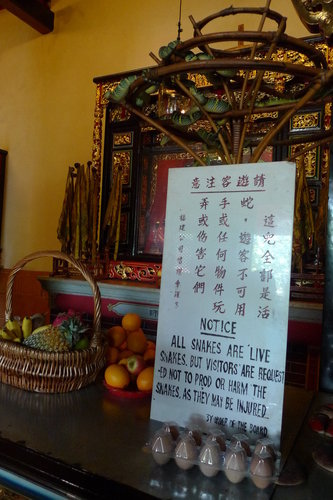 請遊客注意
這兒全部是活
蛇。遊客不可用
手或任何物件玩
弄或伤害它們
福建公司
NOTICE
ALL SNAKES ARE 'LIVE
SNAKES. BUT VISITORS ARE REQUEST
-ED NOT TO PROD OR HARM THE
SNAKES. AS THEY MAY BE INJURED.
BY ORDER OF THE BOARD